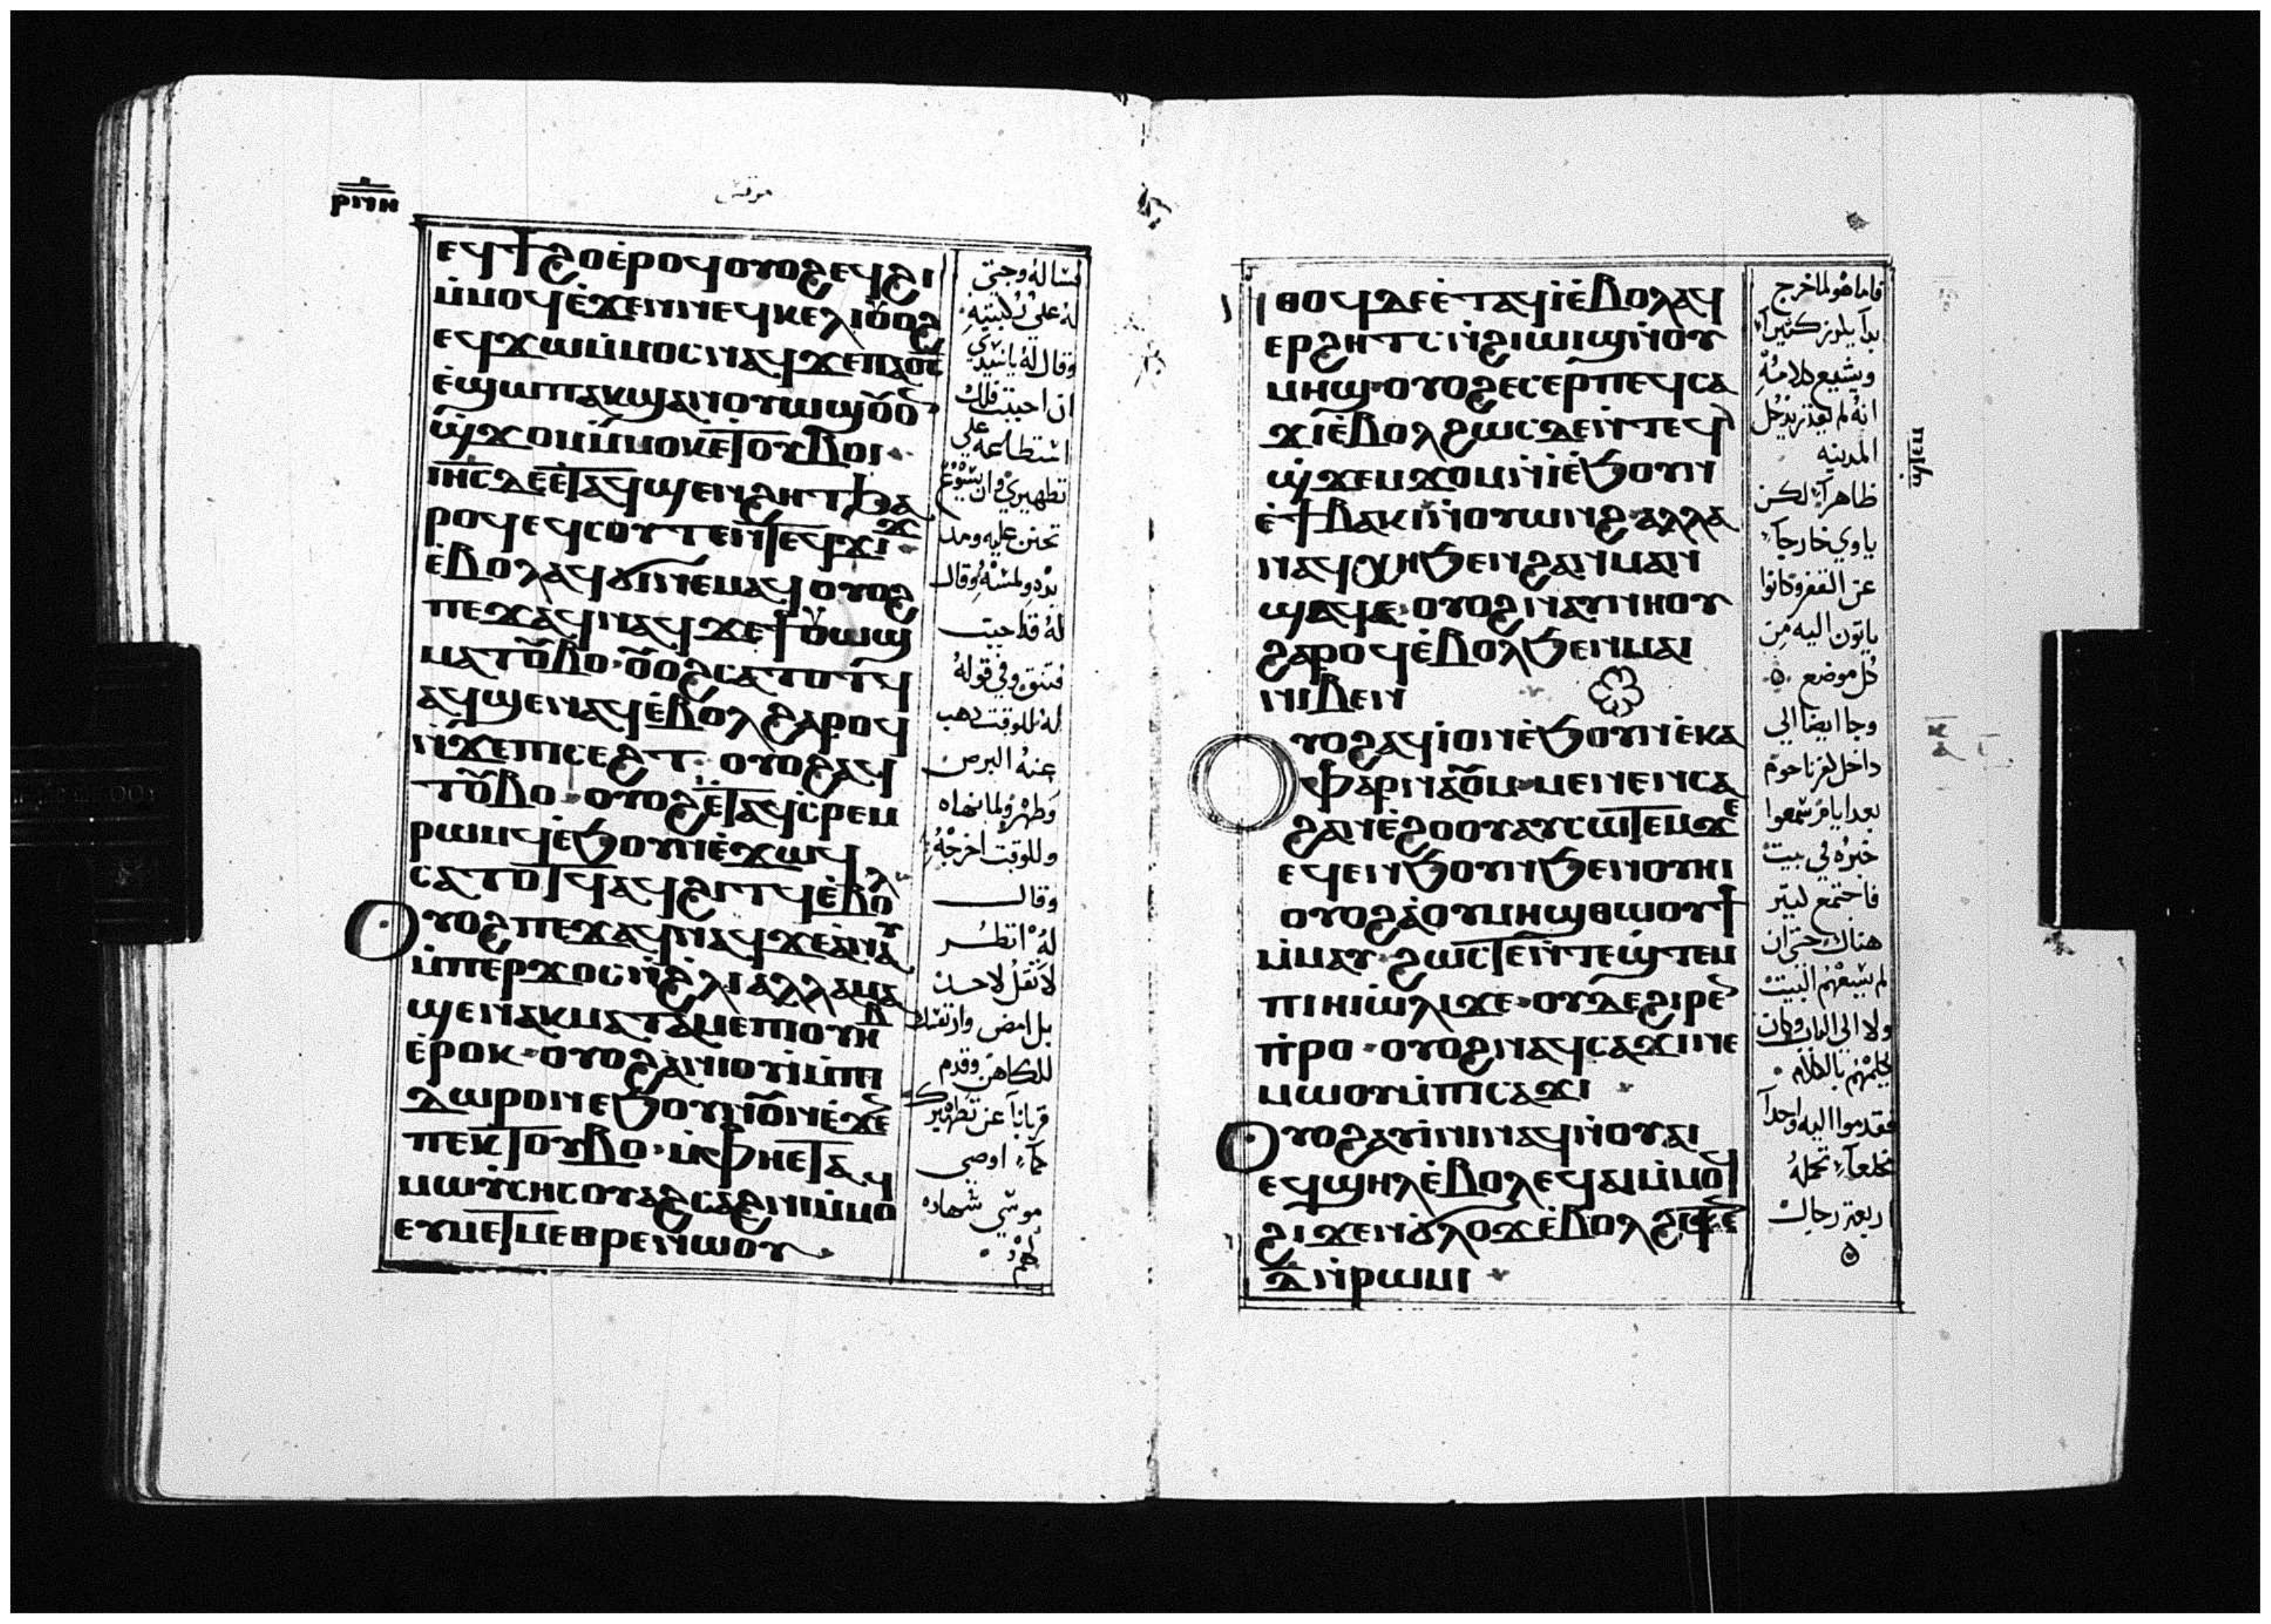 ⲣⲓⲛⲏ
مرقس
ⲉϥϯϩⲟⲉ̀ⲣⲟϥⲟⲩⲟϩⲉϥϩⲓ
ⲙ̀ⲙⲟϥⲉ̀ϫⲉⲛⲛⲉϥⲕⲉⲗⲓⲟ̅ⲟϩ
ⲉϥϫⲱⲙ̀ⲙⲟⲥⲛⲁϥϫⲉⲡⲁⲟ̅ⲥ̅
ⲉ̀ϣⲱⲡⲁⲕϣⲁⲛⲟⲩⲱϣⲟ̅ⲟ̅
ϣ̀ϫⲟⲙⲙ̀ⲙⲟⲕⲉⲧⲟⲩⲃⲟⲓ
ⲓⲏⲥⲇⲉⲉ̀ⲧⲁϥϣⲉⲛϩⲏⲧϧⲁ
ⲣⲟϥⲉϥⲥⲟⲩⲧⲉⲛⲧⲉϥϫⲓϫ
ⲉ̀ⲃⲟⲗⲁϥϭⲓⲛⲉⲙⲁϥⲟⲩⲟϩ
ⲡⲉϫⲁϥⲛⲁϥϫⲉϯⲟⲩⲱϣ
ⲙⲁⲧⲟ̅ⲃⲟ·ⲟ̅ⲟϩⲥⲁⲧⲟⲧϥ
ⲁϥϣⲉⲛⲁϥⲉ̀ⲃⲟⲗϩⲁⲣⲟϥ
ⲛ̀ϫⲉⲡⲓⲥⲉϩⲧ·ⲟⲩⲟϩⲁϥ
ⲧⲟ̅ⲃⲟ·ⲟⲩⲟϩⲉ̀ⲧⲁϥⲥ̀ⲣⲉⲙ
ⲣⲱⲙϥⲉ̀ϧⲟⲩⲛⲉ̀ϫⲱϥ
ⲥⲁⲧⲟⲧϥⲁϥϩⲓⲧϥⲉ̀ⲃⲟⲗ
ⲟⲩⲟϩⲡⲉϫⲁϥⲛⲁϥϫⲉⲁ̀ⲛⲁⲩ
ⲙ̀ⲡⲉⲣϫⲟⲥⲛ̀ϩⲗⲓⲁⲗⲗⲁⲙⲁ
ϣⲉⲛⲁⲕⲙⲁⲧⲁⲙⲉⲡⲓⲟⲩⲏⲃ
ⲉ̀ⲣⲟⲕ·ⲟⲩⲟϩⲁ̀ⲛⲓⲟⲩⲓ̀ⲙ̀ⲡⲓ
ⲇⲱⲣⲟⲛⲉϧⲟⲩⲛⲓⲟ̅ⲛⲉ̀ϫⲉ
ⲡⲉⲕⲧⲟⲩⲃⲟ·ⲙ̀ⲫⲣⲏⲉⲧⲁϥ
ⲙⲱⲩ̀ⲥⲏⲥⲟⲩⲁϩⲥⲁϩⲛⲓⲙ̀ⲙⲟ
ⲉⲩⲙⲉⲧⲙⲉⲑⲣⲉⲛⲱⲟⲩ
يساله وجثى
له على ركبتيه
وقال له ياسيدي
ان احببت فلك
استطاعه على
تطهيري وان يشوع
تحنن عليه ومد
يده ولمسه وقال
له قد احببت
فتنق وفي قوله
له للوقت ذهب
عنه البرص
وطهر ولما نهاه
وللوقت اخرجه
وقال
له انظر
لا تقل لاحد
بل امض وار نفسك
للكاهن وقدم
قربانا عن تطهيرك
كما اوصي
موسي شهاده
لهم
ⲛ̀ⲑⲟϥⲇⲉⲉ̀ⲧⲁϥⲓ̀ⲉ̀ⲃⲟⲗⲁϥ
ⲉⲣϩⲏⲧⲥⲛ̀ϩⲓⲱⲓϣⲛ̀ⲟⲩ
ⲙⲏϣ·ⲟⲩⲟϩⲉⲥⲉⲣⲡⲉϥⲥⲁ
ϫⲓⲉ̀ⲃⲟⲗϩⲱⲥⲇⲉⲛ̀ⲧⲉϥ
ϣ̀ϫⲉⲙϫⲟⲙⲛ̀ⲓ̀ⲉ̀ϧⲟⲩⲛ
ⲉ̀ϯⲃⲁⲕⲓⲛ̀ⲟⲩⲱⲛϩ·ⲁⲗⲗⲁ
ⲛⲁϥⲭⲏϧⲉⲛϩⲁⲛⲙⲁⲛ
ϣⲁϥⲉ·ⲟⲩⲟϩⲛⲁⲩⲛⲏⲟⲩ
ϩⲁⲣⲟϥⲉ̀ⲃⲟⲗϧⲉⲛⲙⲁⲓ
ⲛⲓⲃⲉⲛ
ⲟⲩⲟϩⲁϥⲓ̀ⲟⲛⲉ̀ϧⲟⲩⲛⲉ̀ⲕⲁ
ⲫⲁⲣⲛⲁⲟ̅ⲙ·ⲙⲉⲛⲉⲛⲥⲁ
ϩⲁⲛⲉ̀ϩⲟⲟⲩⲁⲩⲥⲱⲧⲉⲙϫⲉ
ⲉϥⲉⲛϧⲟⲩⲛϧⲉⲛⲟⲩⲏⲓ
ⲟⲩⲟϩⲁ̀ⲟⲩⲙⲏϣⲑⲱⲟⲩϯ
ⲙ̀ⲙⲁⲩ·ϩⲱⲥⲧⲉⲛ̀ⲧⲉϣ̀ⲧⲉⲙ
ⲡⲓⲏⲓⲱ̀ⲗⲓϫⲉ·ⲟⲩⲇⲉϩⲓⲣⲉ
ⲡ̀ⲣⲟ·ⲟⲩⲟϩⲛⲁϥⲥⲁϫⲓⲛⲉ
ⲙⲱⲟⲩⲙ̀ⲡⲓⲥⲁϫⲓ
ⲟⲩⲟϩⲁⲩⲓ̀ⲛⲓⲛⲁϥⲛ̀ⲟⲩⲁⲓ
ⲉϥϣⲏⲗⲉ̀ⲃⲟⲗⲉϥⲁⲓⲙ̀ⲙⲟϥ
ϩⲓϫⲉⲛϭⲗⲟϫⲉ̀ⲃⲟⲗϩⲓⲧⲉ
ⲇ̅ⲛ̀ⲣⲱⲙⲓ
فاما هو لما خرج
بدا يكرز كثيرا
ويشيع كلامه
انه لم يقدر يدخل
المدينه
ظاهرا لكن
ياوي خارجا
عن القفر وكانوا
ياتون اليه من
كل موضع
وجا ايضا الي
داخل كفرناحوم
بعد ايام سمعوا
خبره في بيت
فاجتمع كبير
هناك حتى ان
لم يسعهم البيت
ولا الي الباب وكان
يكلمهم بالكلام
فقدموا اليه واحدا
مخلعا تحمله
اربعة رجال